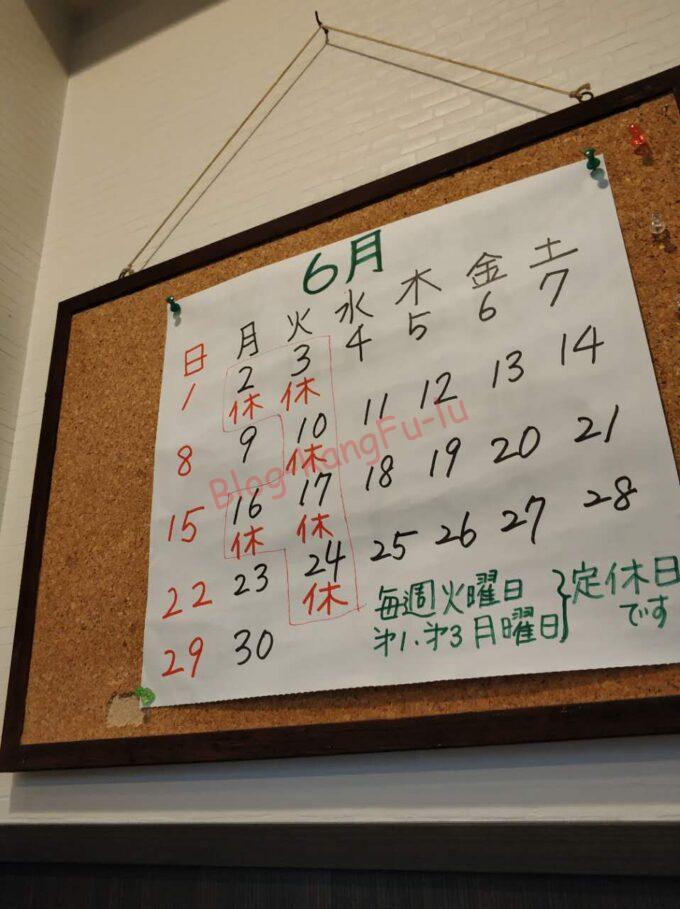 6月
日 月 火 水 木 金 土
1 2 3 4 5 6 7
休 休
8 9 10 11 12 13 14
休
15 16 17 18 19 20 21
休 休
22 23 24 25 26 27 28
休
29 30
毎週火曜日
㐧1.㐧3月曜日}定休日
です
Blog-KangFu-lu